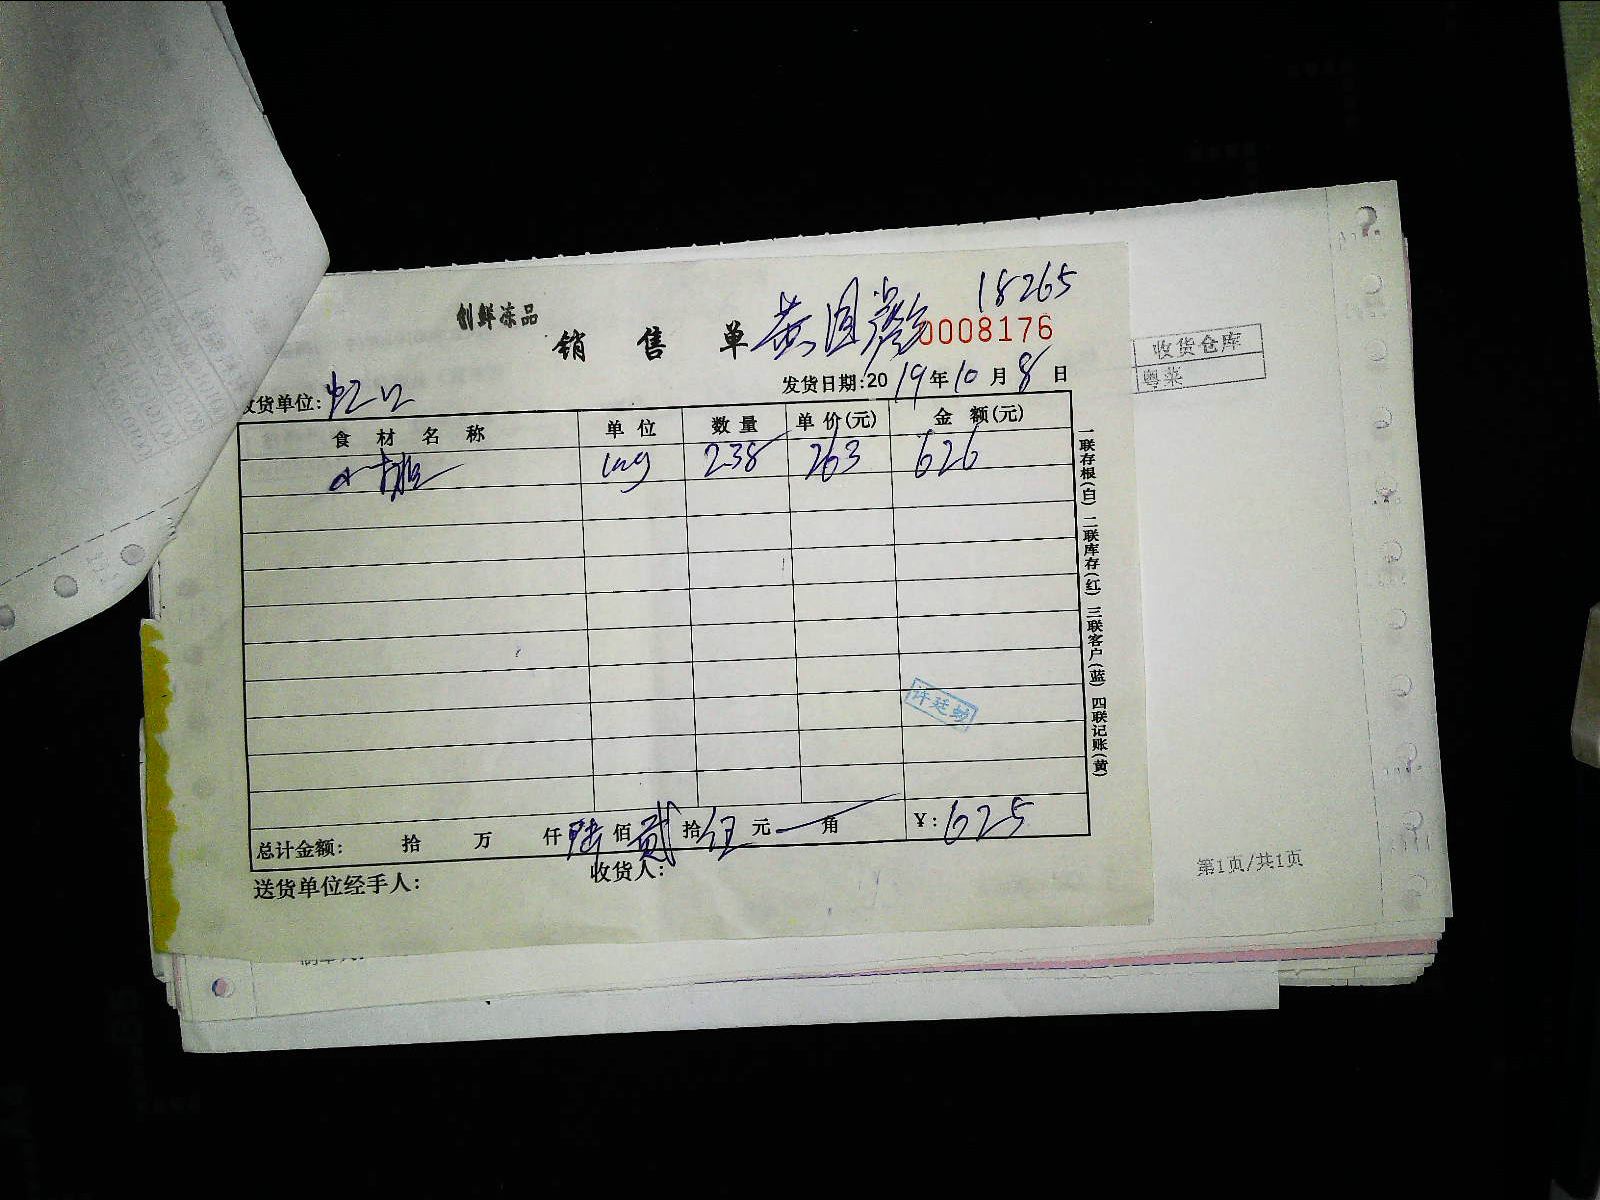 18265
创鲜冻品
销售单 0008176
收货单位: 虹口
发货日期:2019年10月8日
食材名称 单位 数量 单价(元) 金额(元)
238 263 626
总计金额: 拾 万 仟陆佰贰拾伍元 角 ¥:625
送货单位经手人: 收货人:
一联存根(白) 二联库存(红) 三联客户(蓝) 四联记账(黄)
收货仓库
粤菜
第1页/共1页